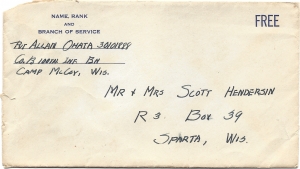 NAME, RANK
AND
BRANCH OF SERVICE
FREE
Pvt ALLAN OHATA 30101899
Co. B 100th INF BN
CAMP McCOY, WIS.
MR & MRS SCOTT HENDERSIN
R 3 BOX 39
SPARTA, WIS.